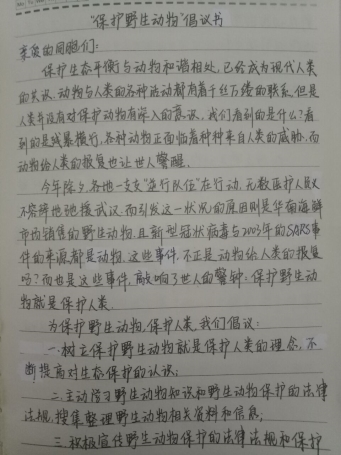 “保护野生动物”倡议书
亲爱的同胞们:
保护生态平衡与动物和谐相处,已经成为现代人类
的共识,动物与人类的各种活动都有着千丝万缕的联系.但是
人类并没有对保护动物有深入的意识,我们看到的是什么?看
到的是残暴横行,各种动物正面临着种种来自人类的威胁,而
动物给人类的报复也让世人警醒.
今年除夕,各地一支支“逆行队伍”在行动,无数医护人员义
不容辞地驰援武汉.而引发这一状况的原因则是华南海鲜
市场销售的野生动物,且新型冠状病毒与2003年的SARS事
件的来源都是动物,这些事件,不正是动物给人类的报复
吗?而也是这些事件,敲响了世人的警钟:保护野生动
物就是保护人类.
为保护野生动物,保护人类,我们倡议:
一.树立保护野生动物就是保护人类的理念,不
断提高对生态保护的认识;
二.主动学习野生动物知识和野生动物保护的法律
法规,搜集整理野生动物相关资料和信息;
三.积极宣传野生动物保护的法律法规和保护